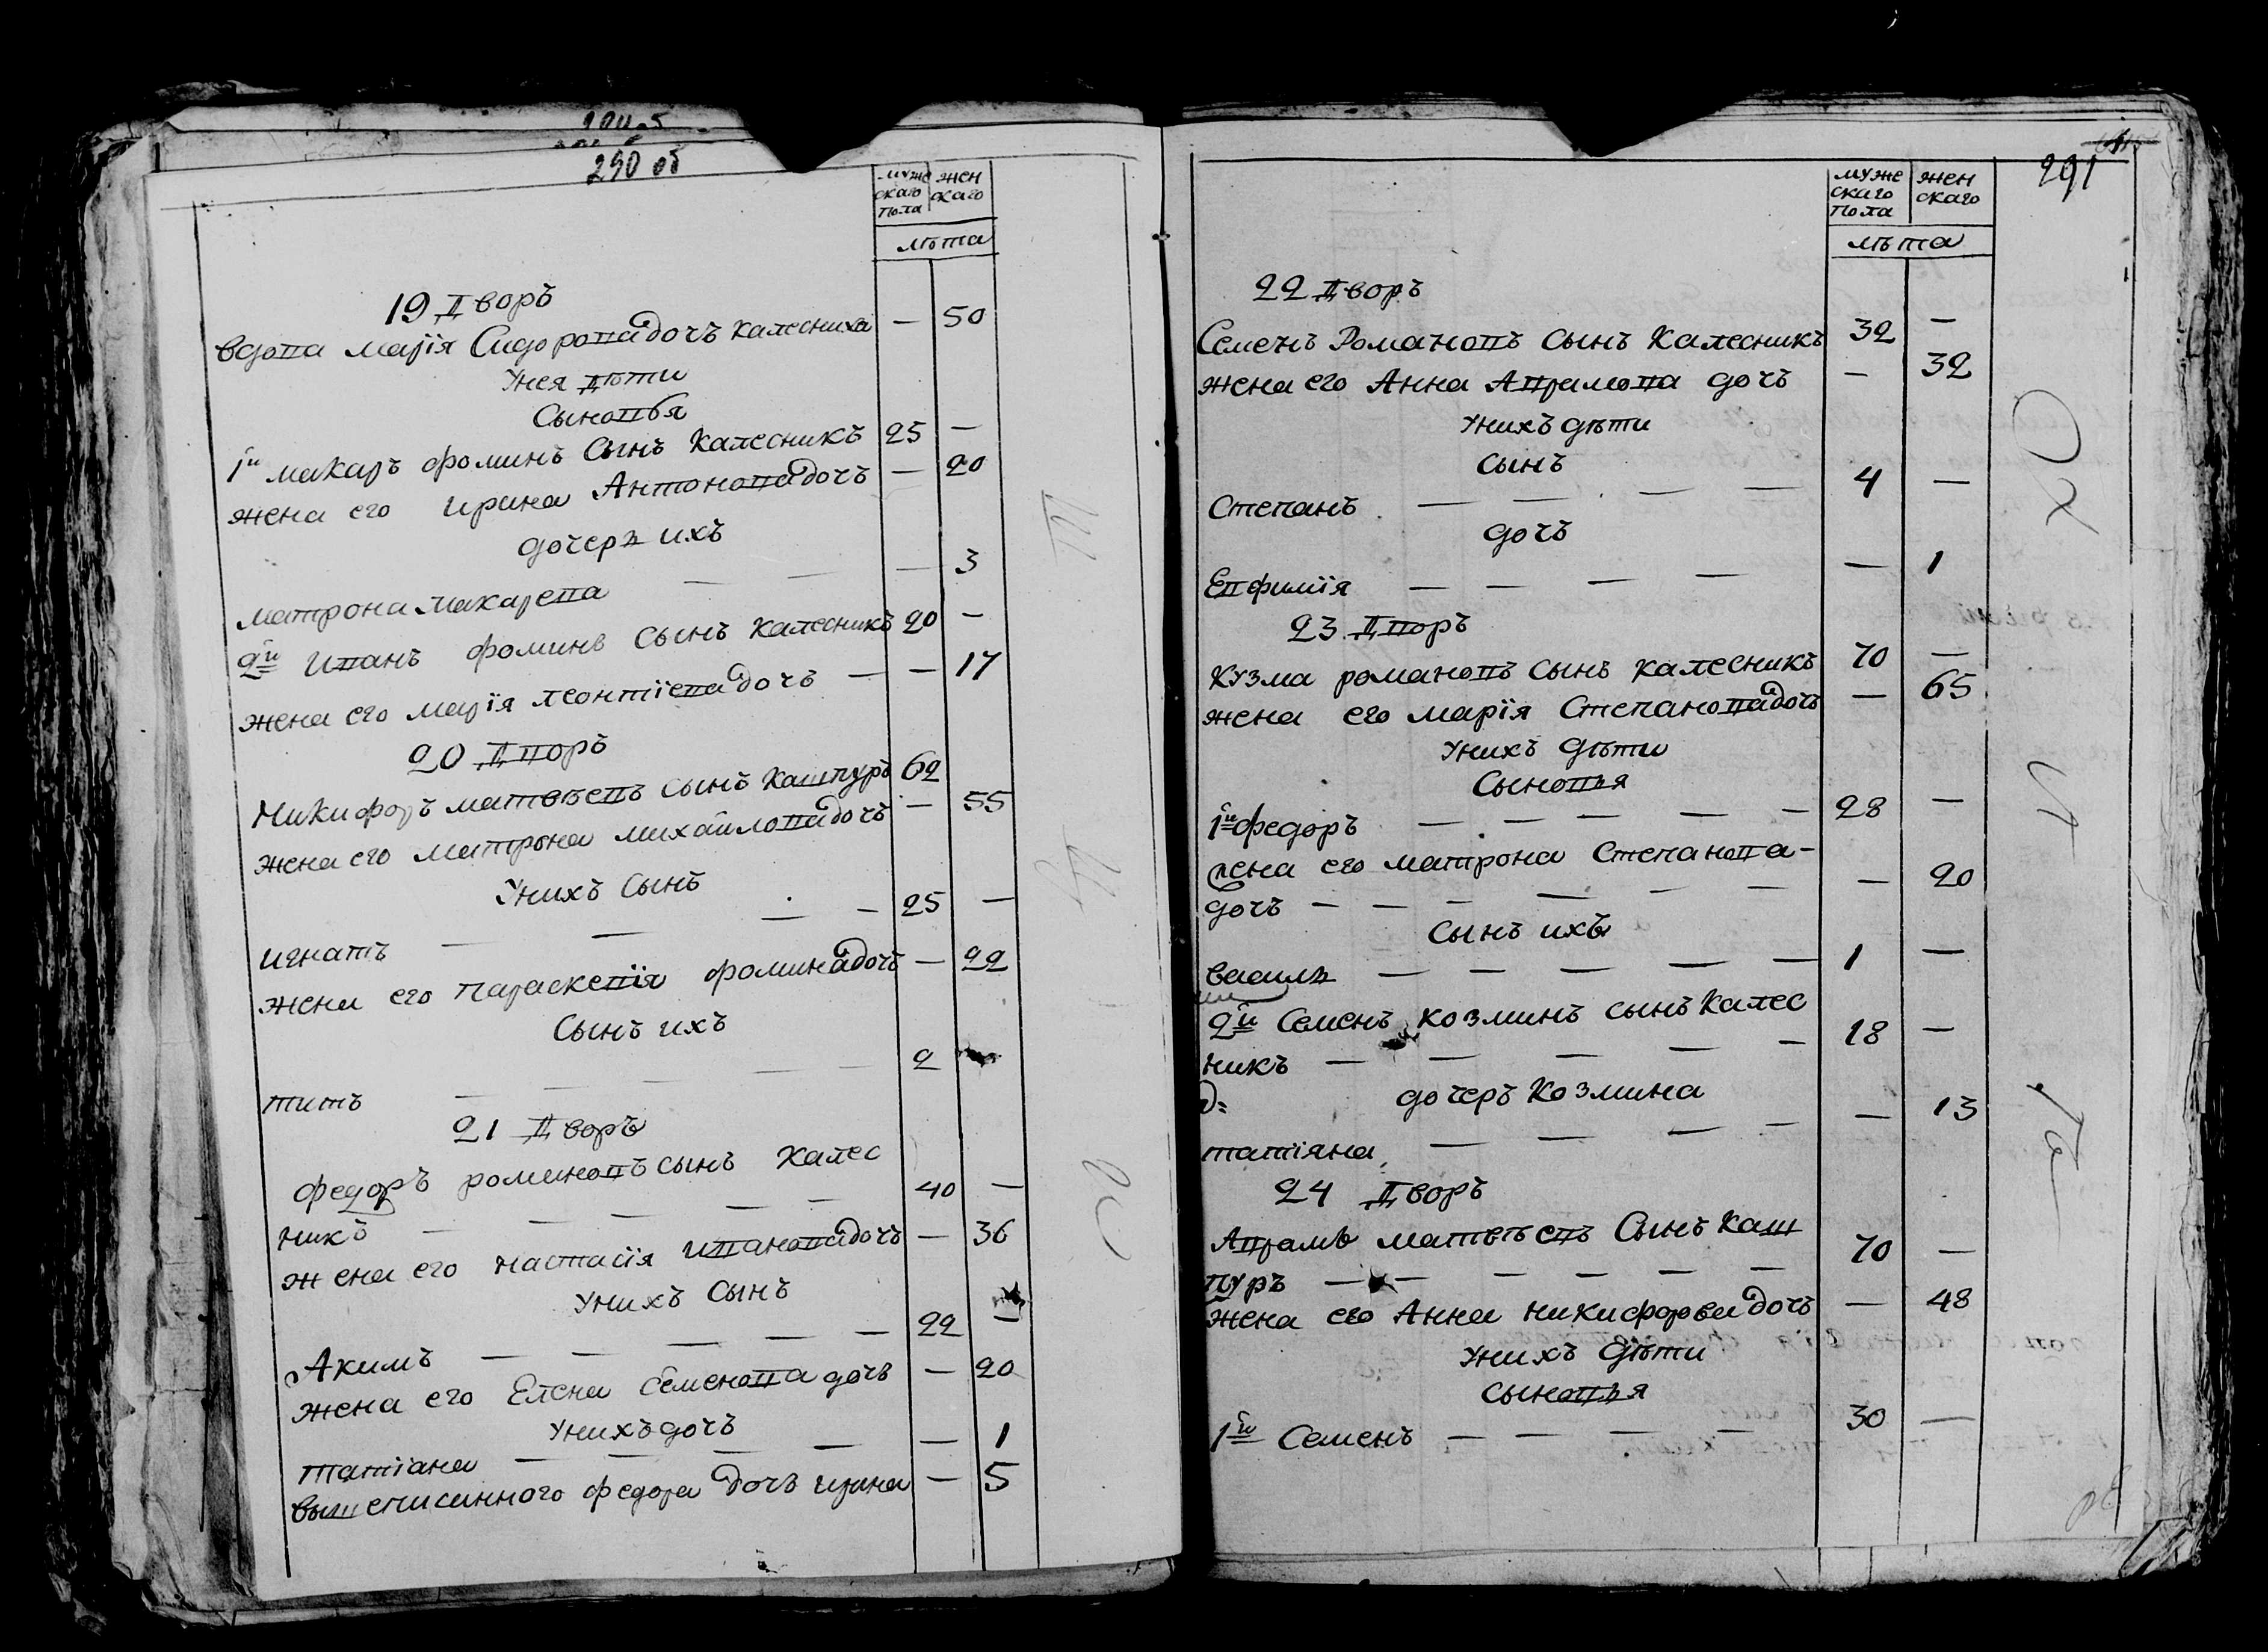 290 об
муже жен
скаго скаго
пола
лѣта
19 Дворъ
вдова марія Сидоровадочъ калесника — 50
Унея дѣти
Сыновья
1й макаръ фоминъ Сынъ Калесникъ 25 —
жена его ирина Антоновадочъ — 20
дочерь ихъ
матрона макарева — — — 3
2й иванъ фоминъ Сынъ калесникъ 20 —
жена его марія леонтіевадочъ — — 17
20 Дворъ
Никифоръ матвѣевъ сынъ кашпуръ 62
жена его матрона михайловадочъ — 55
Унихъ Сынъ
игнатъ — — — — 25 —
жена его параскевія фоминадочъ — 22
Сынъ ихъ
титъ — — — — — 2
21 Дворъ
федоръ романовъ сынъ калес
никъ — — — — — 40 —
жена его настасія ивановадочъ — 36
Унихъ Сынъ
Акимъ — — — — — 22 —
жена его Елена Семеновадочъ — 20
Унихъдочъ
татіана — — — — 1
вышеписанного федора дочъ ирина — 5
291
муже жен
скаго скаго
пола
лѣта
22 Дворъ
Семенъ Романовъ сынъ Калесникъ 32 —
жена его Анна Аврамова дочъ — 32
Унихъ дѣти
сынъ
Степанъ — — — — 4 —
дочъ
Евфимія — — — — — 1
23 Дворъ
Кузма романовъ сынъ калесникъ 70 —
жена его марія Степановадочъ — 65
Унихъ дѣти
Сыновья
1й федоръ — — — — — 28 —
жена его матрона Степанова-
дочъ — — — — — — — 20
Сынъ ихъ
василь — — — — — 1 —
2й Семенъ козминъ сынъ Калес
никъ — — — — — 18 —
дочеръ Козмина
татіяна — — — — — 13
24 Дворъ
Аврамъ матвѣевъ Сынъ Каш
пуръ — — — — — — 70 —
жена его Анна никифорова дочъ — 48
Унихъ дѣти
сыновья
1й Семенъ — — — — 30 —